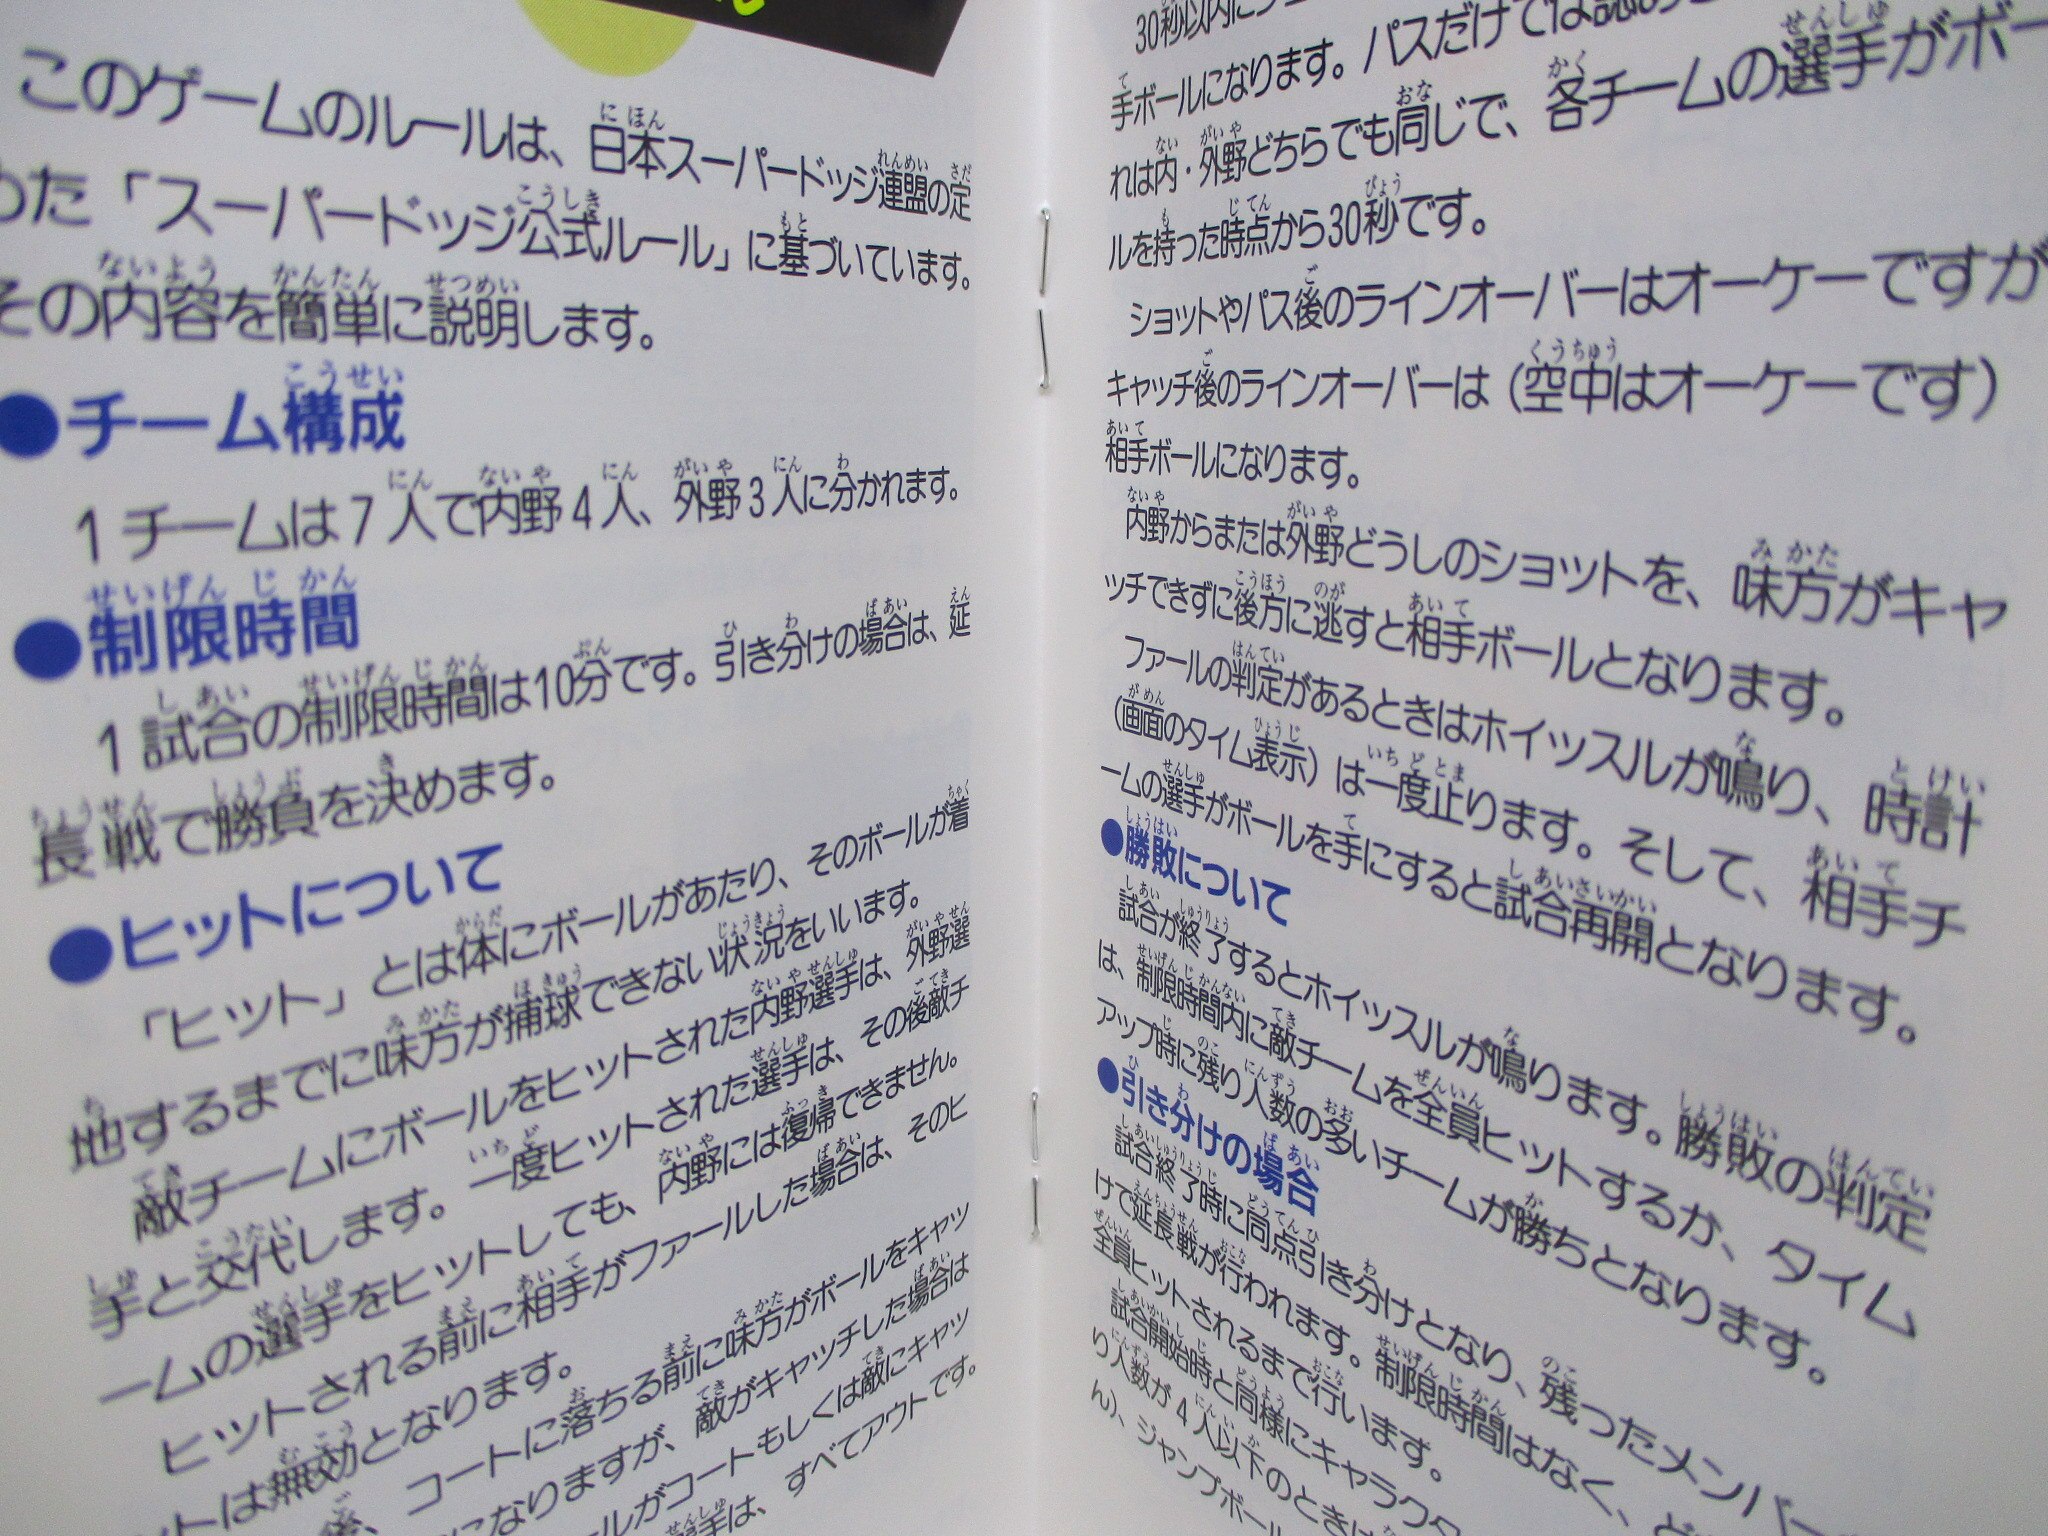 このゲームのルールは、日本スーパードッジ連盟の定
めた「スーパードッジ公式ルール」に基づいています。
その内容を簡単に説明します。
●チーム構成
1チームは7人で内野4人、外野3人に分かれます。
●制限時間
1試合の制限時間は10分です。引き分けの場合は、延
長戦で勝負を決めます。
●ヒットについて
「ヒット」とは体にボールがあたり、そのボールが着
地するまでに味方が捕球できない状況をいいます。
敵チームにボールをヒットされた内野選手は、外野選
手と交代します。一度ヒットされた選手は、その後敵チ
ームの選手をヒットしても、内野には復帰できません。
ヒットされる前に相手がファールした場合は、そのヒ
ットは無効となります。
コートに落ちる前に味方がボールをキャッ
になりますが、敵がキャッチした場合は
ールがコートもしくは敵にキャッ
選手は、すべてアウトです。
30秒以内に
手ボールになります。パスだけでは
れは内・外野どちらでも同じで、各チームの選手がボー
ルを持った時点から30秒です。
ショットやパス後のラインオーバーはオーケーですが
キャッチ後のラインオーバーは(空中はオーケーです)
相手ボールになります。
内野からまたは外野どうしのショットを、味方がキャ
ッチできずに後方に逃すと相手ボールとなります。
ファールの判定があるときはホイッスルが鳴り、時計
(画面のタイム表示)は一度止ります。そして、相手チ
ームの選手がボールを手にすると試合再開となります。
●勝敗について
試合が終了するとホイッスルが鳴ります。勝敗の判定
は、制限時間内に敵チームを全員ヒットするか、タイム
アップ時に残り人数の多いチームが勝ちとなります。
●引き分けの場合
試合終了時に同点引き分けとなり、残ったメンバー
けで延長戦が行われます。制限時間はなく、ど
全員ヒットされるまで行います。
試合開始時と同様にキャラクタ
り人数が4人以下のときは
ん)、ジャンプボー